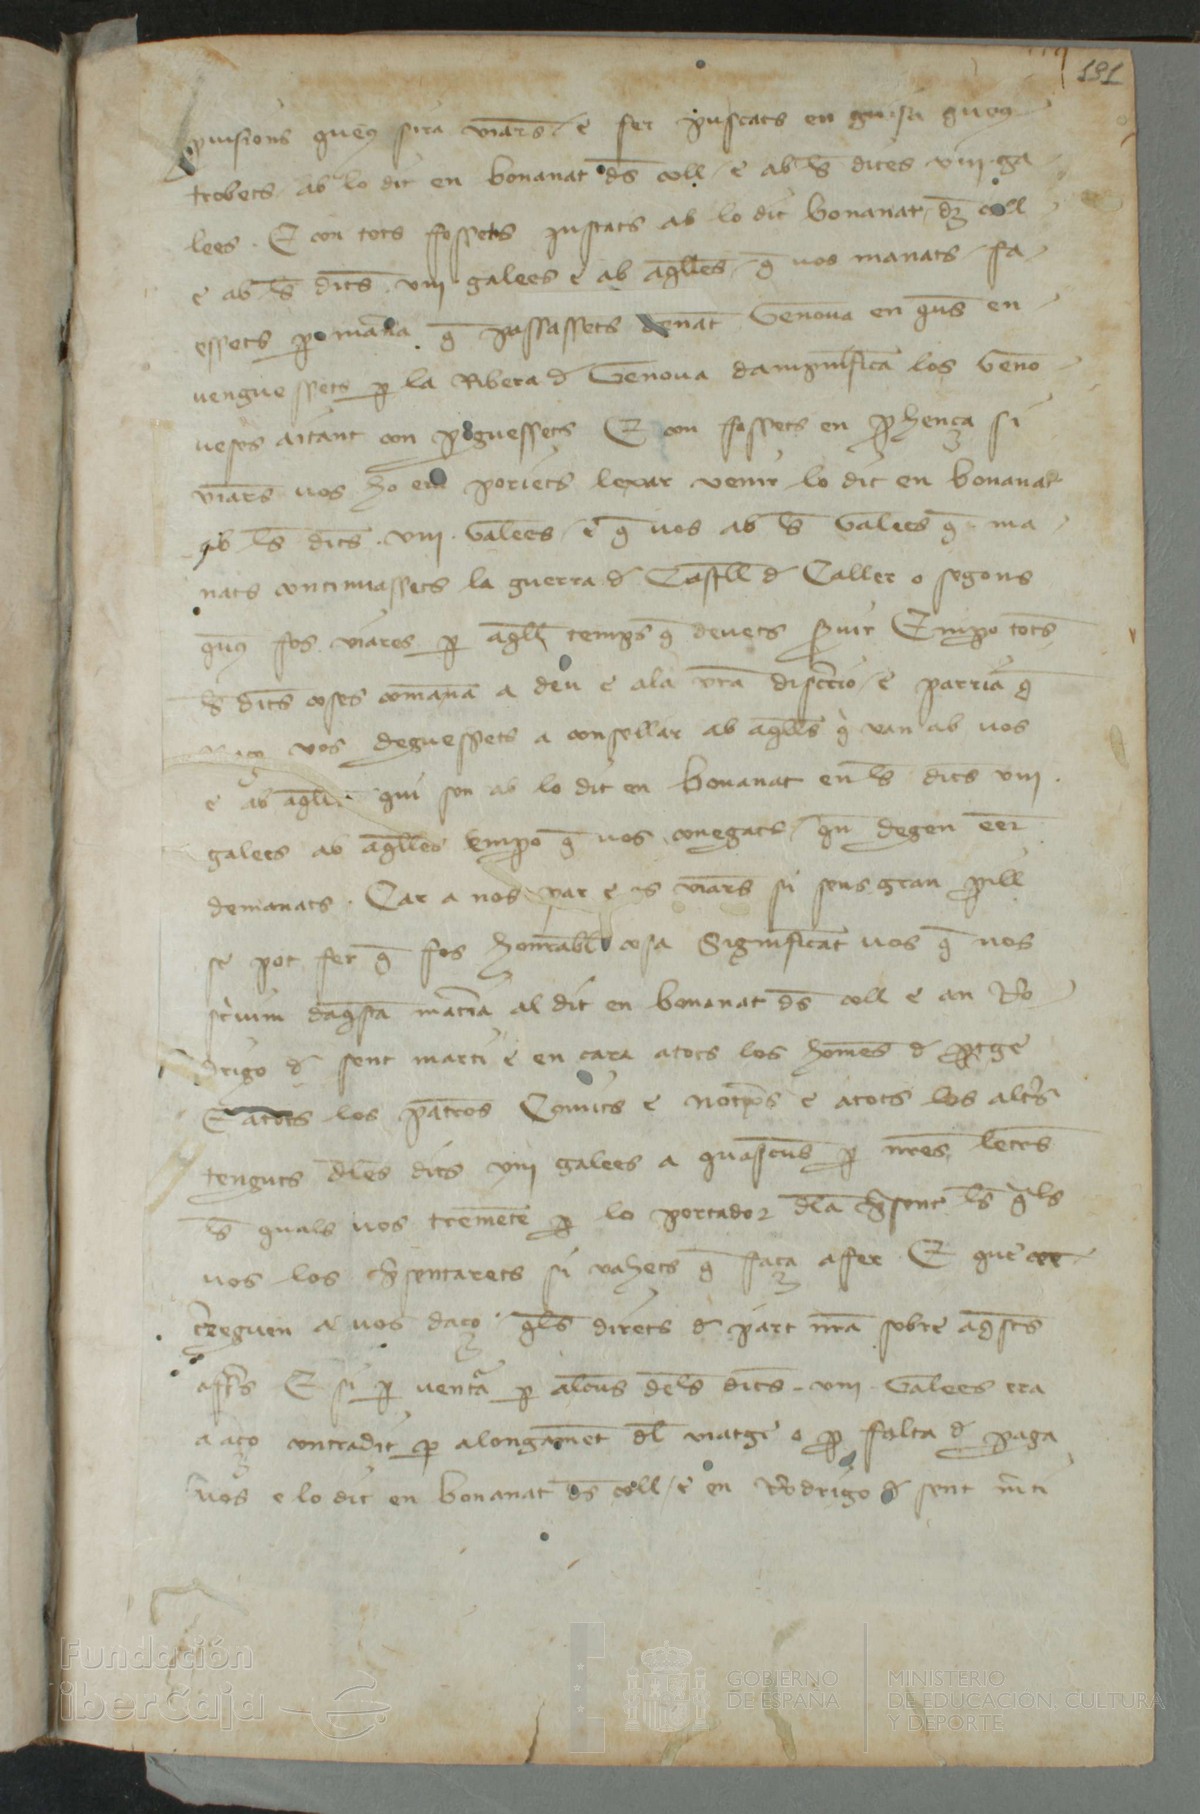 191
puisions queus sira viares e fer puscats en guisa queus
trobets ab lo dit en bonanat dς coll e ab ls dites viii ga
lees . E con tots fossets justats ab lo dit bonanat dz coll
e ab ls dits viii galees e ab aqlles q̄ vos manats fa
essets p̱ manã q̄ passassets denãt Genoua en qus en
venguessets p̱ la Ribera d Genoua dampnifica los Geno
ueses aitant con poguessets E con fossets en prohença si
viars vos ho em poriets lexar venir lo dit en bonanat
ab ls dits viii Galees e q̄ vos ab ls Galees q̄ ma
nats continuassets la guerra d Castll d Caller o segons
queus fos viares p̱ aqll temps q̄ deuets seruir Empo tots
ls dits coses comanã a deu e ala vrã discrecio e parria q̄
daço vos deguessets a consellar ab aqlls q̄ van ab vos
e ab aqlls qui son ab lo dit en bonanat en ls dits viii
galees ab aqlles empo q̄ vos conegats qn degen eer
demanats . Car a nos par e es viars si sens gran pill
se pot fer q̄ fos honrabl cosa Significãt vos q̄ nos
scriuim daqsta matia al dit en bonanat dς coll e an Ro
drigo d sent marti e en cara atots los homes d ptge
E atots los patros Comits e notxes e atots los altrs
tenguts dles dits viii galees a quascus p̱ nres letres
ls quals vos trametē p̱ lo portador dla psent ls qls
vos los psentarets si vahets q̄ faça affer E que
creeguen a vos daço qls direts d part nrã sobre aqsts
affrs E si p̱ ventã p̱ alcus dels dits viii Galees era
a aço contradit p̱ alongamēt dl viatge o p̱ falta d paga
vos e lo dit en bonanat dς coll e en Rodrigo d sent mrti
Fundación
iberCaja
GOBIERNO
DE ESPAÑA
MINISTERIO
DE EDUCACION, CULTURA
Y DEPORTE